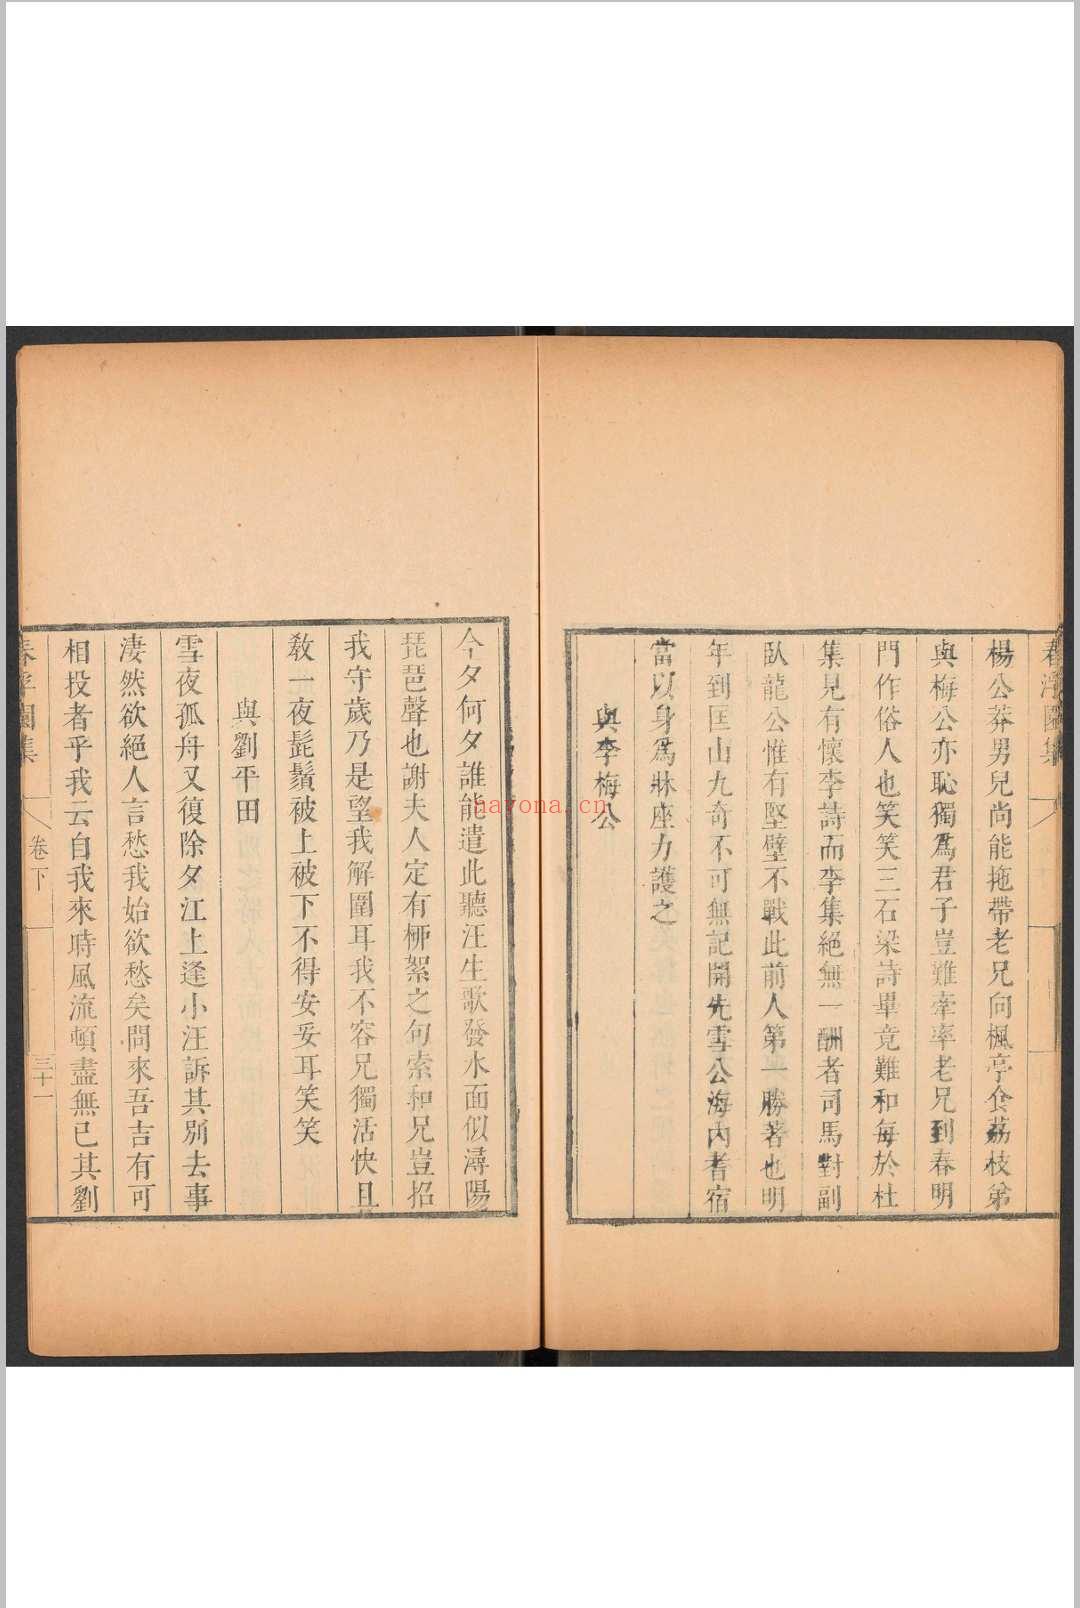 春浮園集
楊公莽男兒尚能拖帶老兄向楓亭食荔枝弟
與梅公亦恥獨爲君子豈難牽率老兄到春明
門作俗人也笑笑三石梁詩畢竟難和每於杜
集見有懷李詩而李集絕無一酬者司馬對副
臥龍公惟有堅壁不戰此前人第一勝著也明
年到匡山九奇不可無記開先雪公海內耆宿
當以身爲牀座力護之
與李梅公
今夕何夕誰能遣此聽汪生歌發水面似潯陽
琵琶聲也謝夫人定有柳絮之句索和兄豈招
我守歲乃是望我解圍耳我不容兄獨活快且
敎一夜髭鬚被上被下不得安妥耳笑笑
與劉平田
雪夜孤舟又復除夕江上逢小汪訴其別去事
淒然欲絕人言愁我始欲愁矣問來吾吉有可
相投者乎我云自我來時風流頓盡無已其劉
春浮園集
卷下
三十一
navona.cn